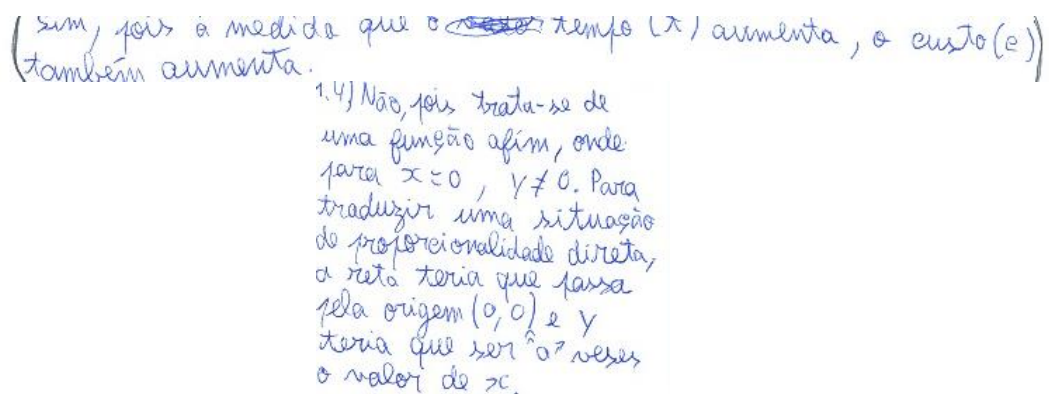 (Sim, pois à medida que o tempo (x) aumenta, o custo (c))
também aumenta.
1.4) Não, pois trata-se de
uma função afim, onde
para x = 0, y ≠ 0. Para
traduzir uma situação
de proporcionalidade direta,
a reta teria que passa
pela origem (0,0) e y
teria que ser "a" veses
o valor de x.